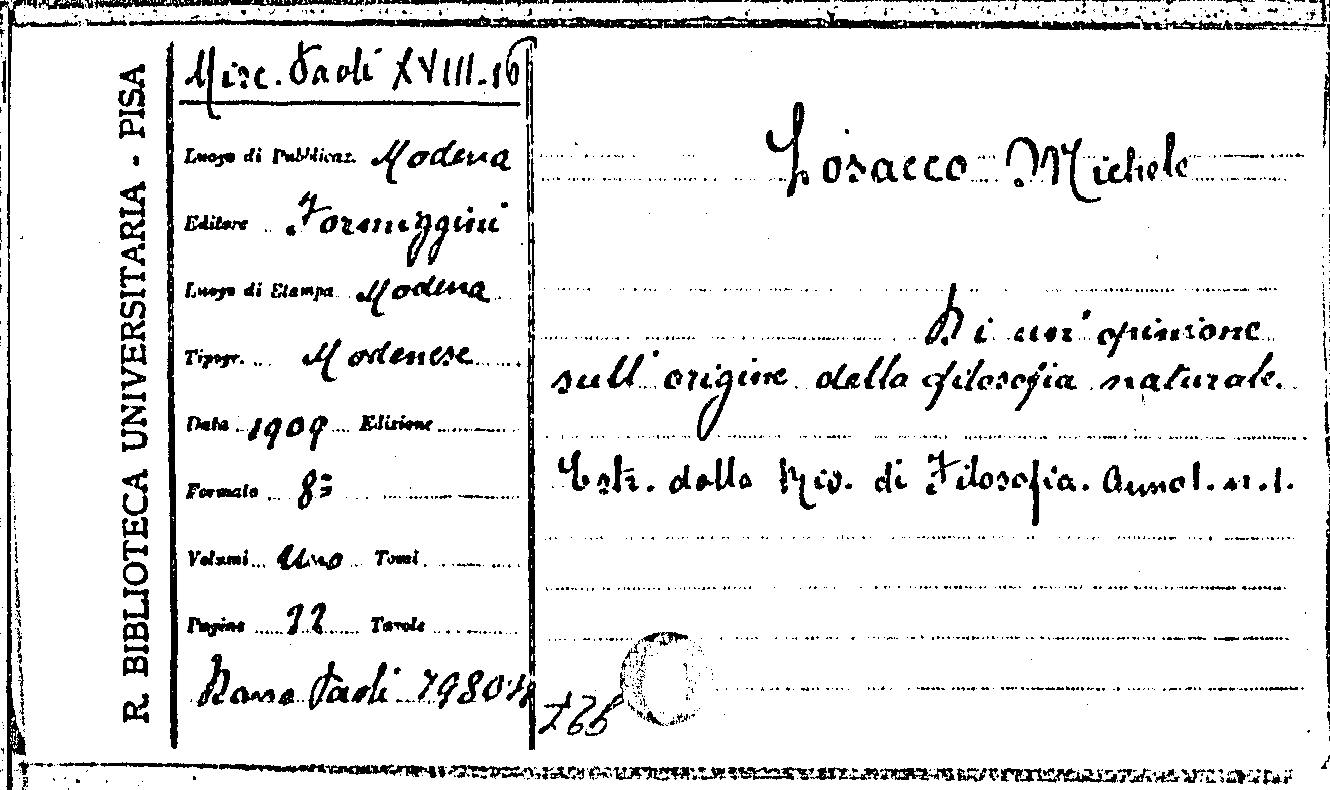 R. BIBLIOTECA UNIVERSITARIA - PISA
Misc. Paoli XVIII.16
Luogo di Pubblicaz. Modena
Editore Formiggini
Luogo di Stampa Modena
Tipogr. Modenese
Data 1909 Edizione
Formato 8º
Volumi Uno Tomi
Pagine Tavole
Dono Paoli
Losacco Michele
Di un' opinione
sull' origine della filosofia naturale.
Estr. dalla Riv. di Filosofia. Anno I. n. 1.